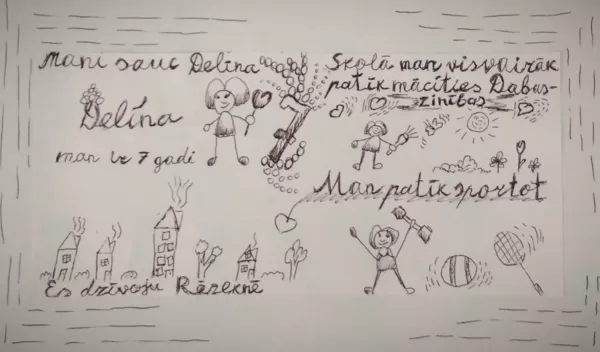 Mani sauc Delīna
Delīna
man ir 7 gadi
7
Skolā man visvairāk
patīk mācīties Dabas-
zinības
Man patīk sportot
Es dzīvoju Rēzeknē